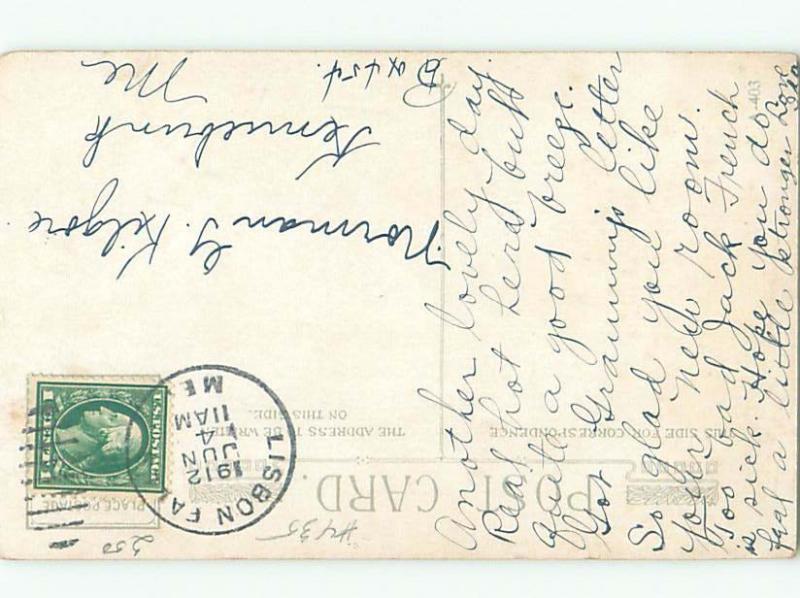 Another lovely day.
Real hot here but
quite a good breeze.
Got Grammy's letter
So glad you like
your new room.
Too bad Jack French
is sick. Hope you do
feel a little stronger Love
A-403
Norman G. Kilgore.
Kennebunk
Me
Box 454.
POST CARD.
THIS SIDE FOR CORRESPONDENCE
THE ADDRESS TO BE WRITTEN
ON THIS SIDE.
PLACE POSTAGE
U.S. POSTAGE
LISBON FA
ME
1912
JUN
4
11 AM
#435
250